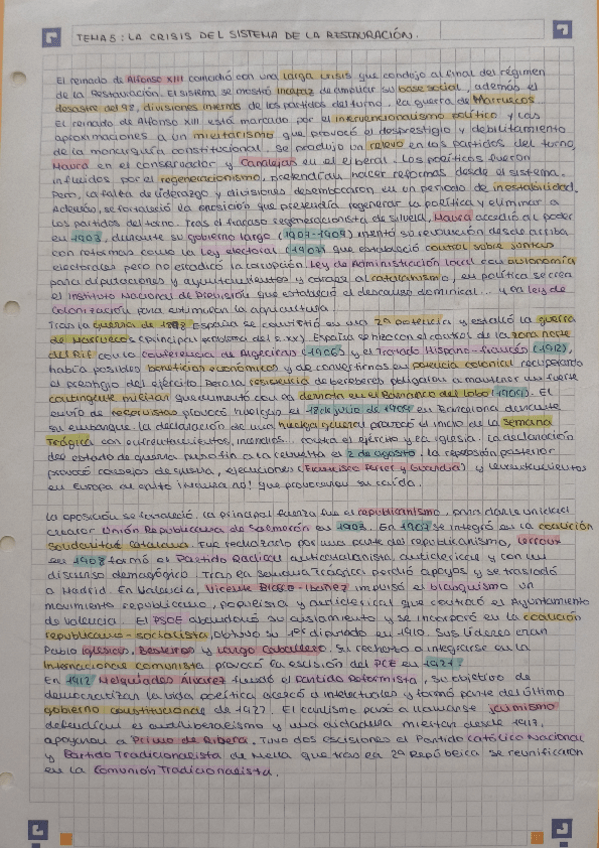 TEMA 5: LA CRISIS DEL SISTEMA DE LA RESTAURACIÓN.
El reinado de Alfonso XIII coincidió con una larga crisis que condujo al final del régimen
de la Restauración. El sistema se mostró incapaz de ampliar su base social, además el
desastre del 98, divisiones internas de los partidos del turno, la guerra de Marruecos.
El reinado de Alfonso XIII está marcado por el intervencionismo político y las
aproximaciones a un militarismo que provocó el desprestigio y debilitamiento
de la monarquía constitucional. Se produjo un relevo en los partidos del turno,
Maura en el conservador y Canalejas en el liberal. Los políticos fueron
influidos por el regeneracionismo, pretendían hacer reformas desde el sistema.
Pero, la falta de liderazgo y divisiones desembocaron en un periodo de inestabilidad.
Además, se fortaleció la oposición que pretendía regenerar la política y eliminar a
los partidos del turno. Tras el fracaso regeneracionista de Silvela, Maura accedió al poder
en 1903, durante su gobierno largo (1907-1909) intentó su revolución desde arriba
con reformas como la Ley electoral (1907) que estableció control sobre juntas
electorales pero no erradicó la corrupción. Ley de Administración local con autonomía
para diputaciones y ayuntamientos y el catalanismo, en política se crea
el Instituto Nacional de Previsión que estableció el descanso dominical... y la ley de
Colonización para estimular la agricultura.
Tras la guerra de 1898 España se convirtió en una 2ª potencia y estalló la guerra
de Marruecos (principal problema del s.XX). España se hizo con el control de la zona norte
del Rif con la conferencia de Algeciras (1906) y el Tratado Hispano-francés (1912),
había posibles beneficios económicos y de convertirnos en potencia colonial recuperando
el prestigio del ejército. Pero la resistencia de bereberes obligaron a mantener un fuerte
contingente militar que aumentó con la derrota en el Barranco del Lobo (1909). El
envío de reservistas provocó huelgas el 18 de julio de 1909 en Barcelona durante
su embarque. La declaración de una huelga general provocó el inicio de la Semana
Trágica con enfrentamientos, incendios... contra el ejército y la iglesia. La declaración
del estado de guerra puso fin a la revuelta el 2 de agosto. La represión posterior
provocó consejos de guerra, ejecuciones (Francisco Ferrer y Guardia) y levantamientos
en Europa al grito ¡Maura no! que provocaron su caída.
La oposición se fortaleció, la principal fuerza fue el republicanismo, para darle unidad
crearon Unión Republicana de Salmerón en 1903. En 1907 se integró en la coalición
Solidaritat Catalana. Fue rechazado por una parte del republicanismo, Lerroux
en 1908 formó el Partido Radical anticatalanista, anticlerical y con un
discurso demagógico. Tras la Semana Trágica perdió apoyos y se trasladó
a Madrid. En Valencia, Vicente Blasco-Ibáñez impulsó el blasquismo un
movimiento republicano, populista y anticlerical que controló el Ayuntamiento
de Valencia. El PSOE abandonó su aislamiento y se incorporó en la coalición
republicano-socialista, obtuvo su 1er diputado en 1910. Sus líderes eran
Pablo Iglesias, Besteiro y Largo Caballero. Su rechazo a integrarse en la
Internacional comunista provocó la escisión del PCE en 1921.
En 1912 Melquiades Álvarez fundó el Partido Reformista, su objetivo de
democratizar la vida política acercó a intelectuales y formó parte del último
gobierno constitucional de 1922. El carlismo pasó a llamarse jaimismo
defendían el antiliberalismo y una dictadura militar desde 1917,
apoyaron a Primo de Ribera. Tuvo dos escisiones el Partido Católico Nacional
y Partido Tradicionalista de Mella que tras la 2ª República se reunificaron
en la Comunión Tradicionalista.